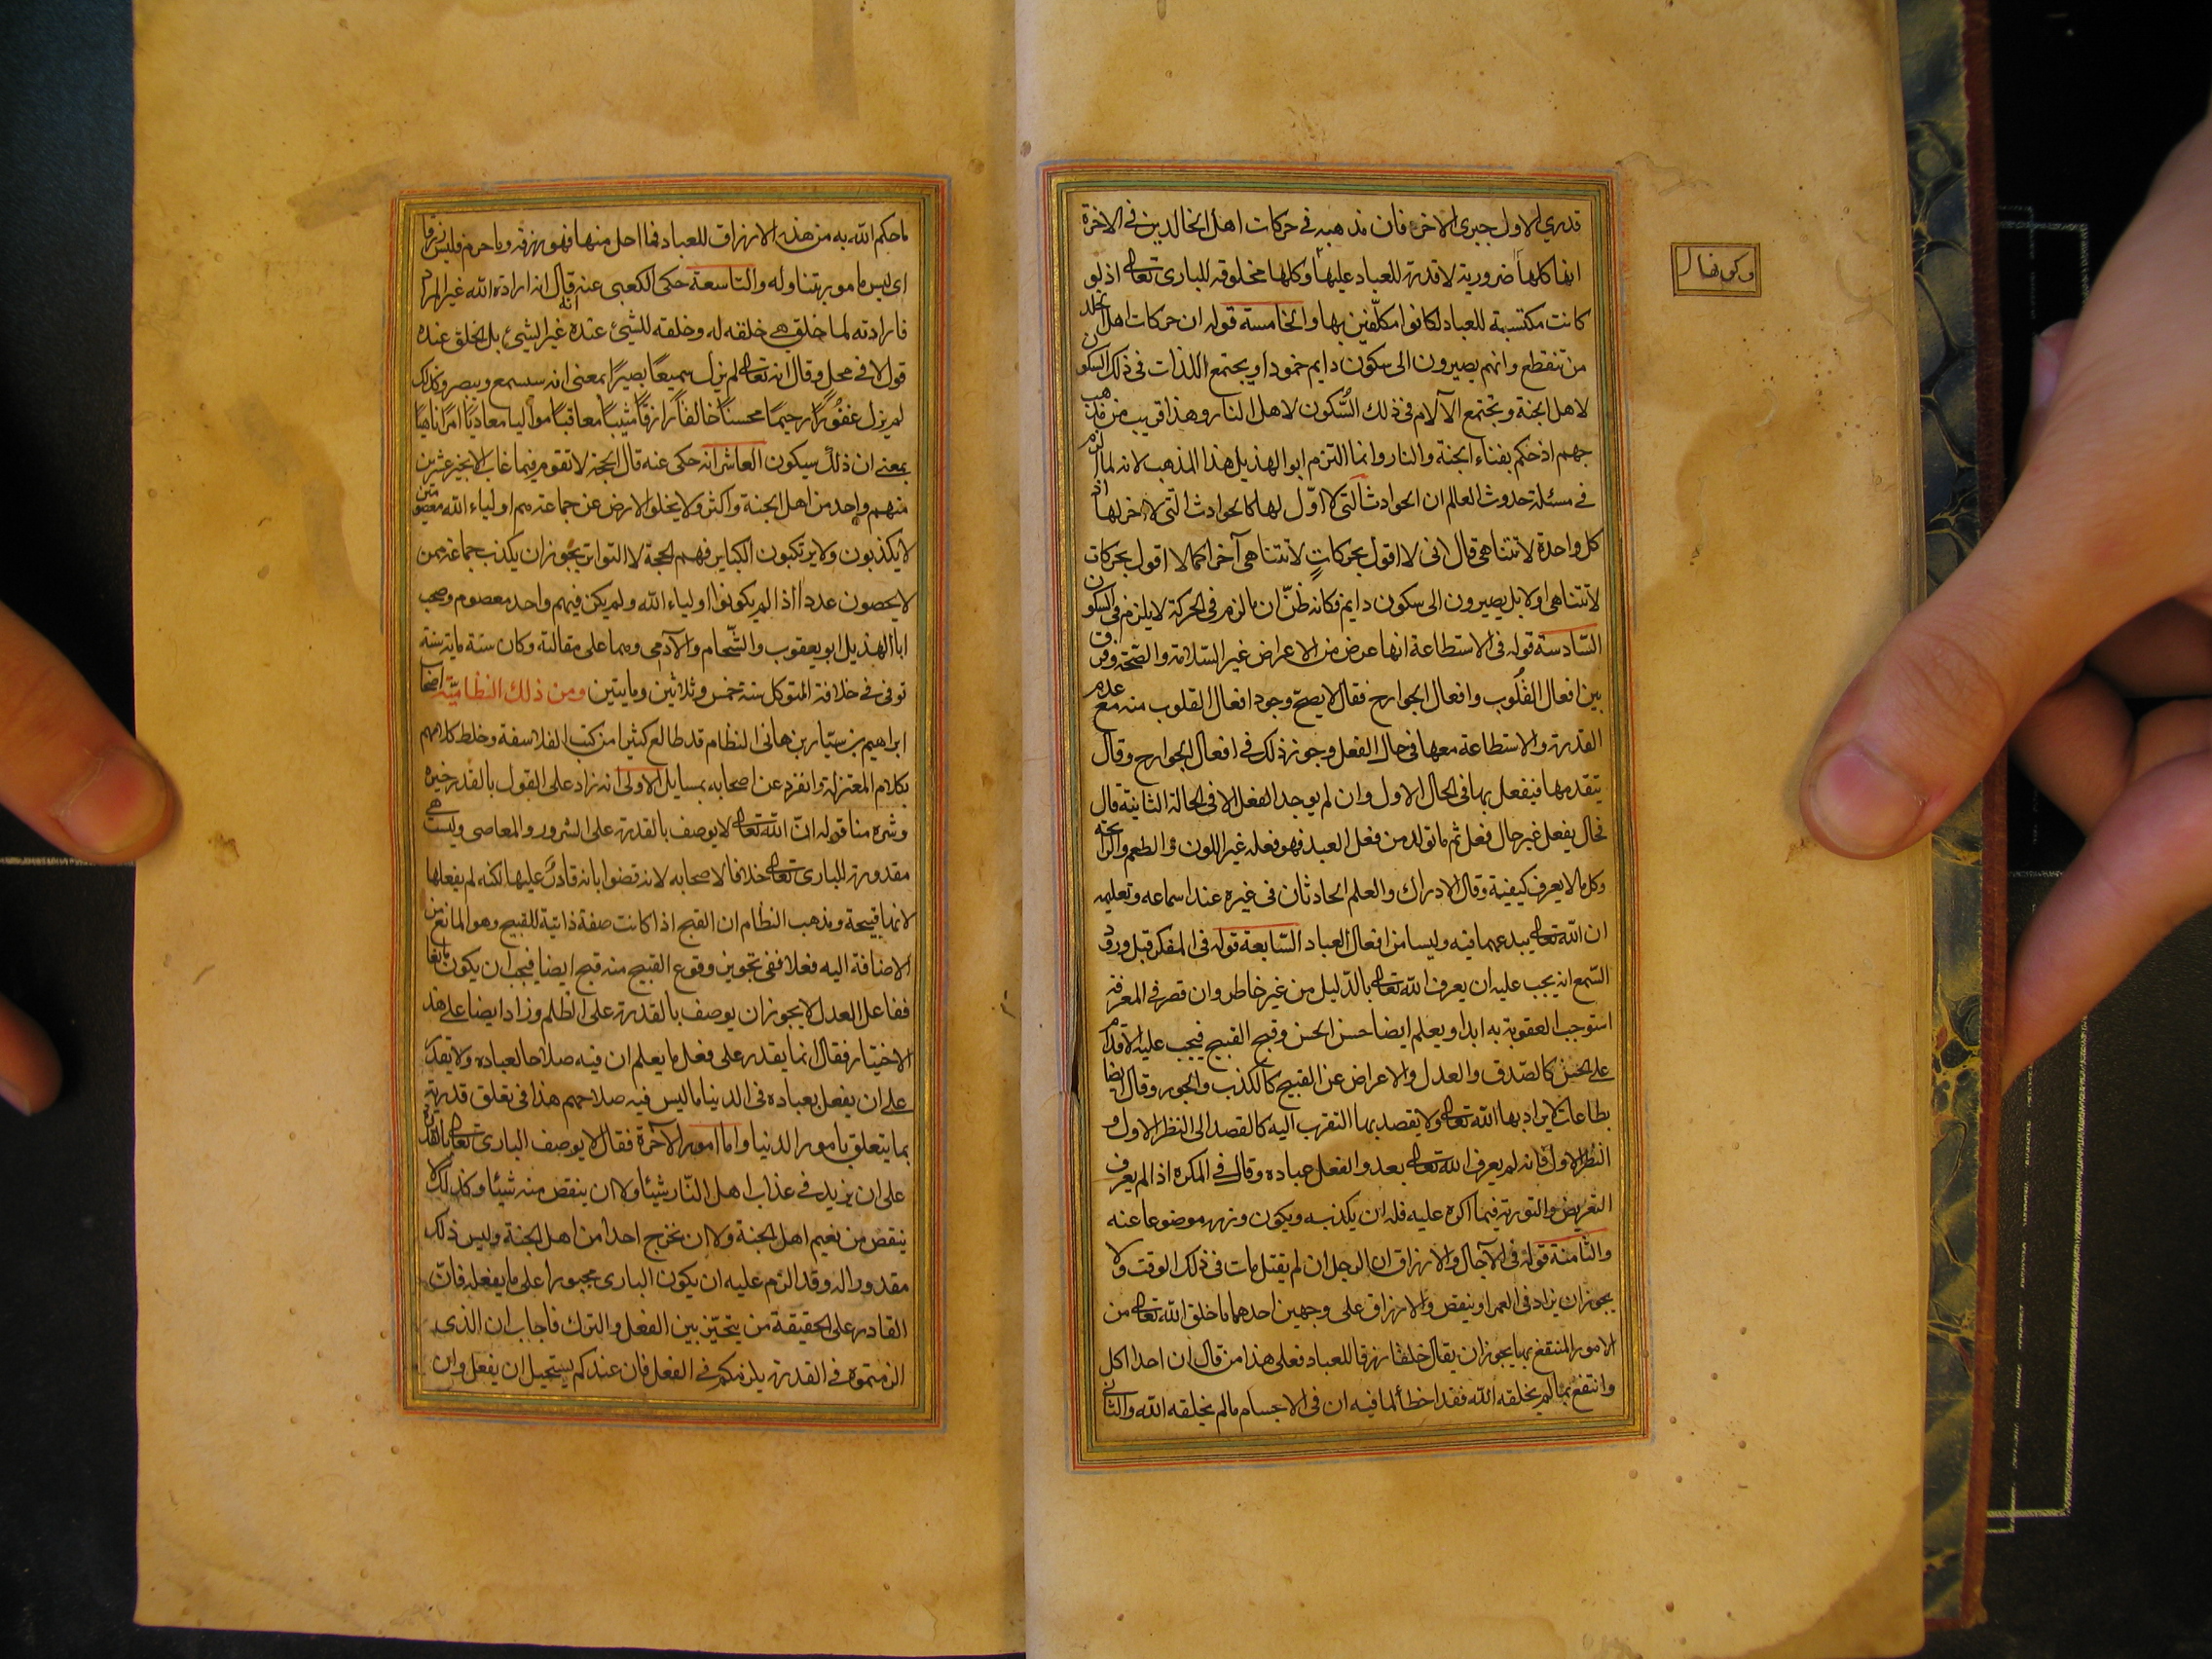 قدري الاول جبرى الاخرة فان مذهبه في حركات اهل الخالدين في الاخرة
انها كلها ضرورية لا قدرة للعباد عليها وكلها مخلوقة للبارى تعالى اذ لو
كانت مكتسبة للعباد لكانوا مكلّفين بها والخامسة قوله ان حركات اهل الخلد
من تنقطع وانهم يصيرون الى سكون دايم خمودا ويجتمع اللذات فى ذلك السكون
لاهل الجنة وتجتمع الآلام فى ذلك السّكون لاهل النار وهذا قريب من مذهب
جهم اذ حكم بفناء الجنة والنار وانما التزم ابو الهذيل هذا المذهب لانه لما الزم
في مسئلة حدوث العالم ان الحوادث التى لا اوّل لها كالحوادث التى لا اخر لها اذ
كل واحدة لا تتناهى قال انى لا اقول بحركاتٍ لا تتناهى آخرا كما لا اقول بحركات
لا تتناهى اولا بل يصيرون الى سكون دايم فكانه ظنّ ان ما لزم فى الحركة لا يلزم فى السكون
السّادسة قوله فى الاستطاعة انها عرض من الاعراض غير السّلامة والصّحة وفرق
بين افعال القلُوب وافعال الجوارح فقال لا يصحّ وجود افعال القلوب منه مع عدم
القدرة والاستطاعة معها فى حال الفعل وجوز ذلك في افعال الجوارح وقال
يتقدمها فيفعل بها فى الحال الاول وان لم يوجد الفعل الا فى الحالة الثانية قال
فحال يفعل غير حال فعل ثم ما تولد من فعل العبد فهو فعله غير اللون والطعم والرائحة
وكل ما لا يعرف كيفية وقال الادراك والعلم الحادثان فى غيره عند اسماعه وتعليمه
ان الله تعالى يبدعهما فيه وليسا من افعال العباد السّابعة قوله فى المفكر قبل ورود
السّمع انه يجب عليه ان يعرف الله تعالى بالدّليل من غير خاطر وان قصر في المعرفة
استوجب العقوبة به ابدا ويعلم ايضا حسن الحسن وقبح القبيح فيجب عليه الاقدام
على الحسن كالصّدق والعدل والاعراض عن القبيح كالكذب والجور وقال ايضا
بطاعات لا يراد بها الله تعالى ولا يقصد بها التقرب اليه كالقصد الى النظر الاول و
النظر الاول فانه لم يعرف الله تعالى بعد والفعل عباده وقال في المكره اذا لم يعرف
التعريض والتورية فيما اكره عليه فله ان يكذب ويكون وزره موضوعا عنه
والثامنة قوله فى الآجال والارزاق ان الرجل ان لم يقتل مات فى ذلك الوقت ولا
يجوز ان يزاد فى العمر او ينقص والارزاق على وجهين احدهما ما خلق الله تعالى من
الامور المنتفع بها يجوز ان يقال خلقها رزقا للعباد فعلى هذا من قال ان احدا اكل
وانتفع بما لم يخلقه الله فقد اخطأ لما فيه ان فى الاجسام ما لم يخلقه الله والثانى
ما حكم الله به من هذه الارزاق للعباد فما احل منها فهو رزقه وما حرم فليس رزقا
اى ليس مامور بتناوله والتاسعة حكى الكعبى عنه انه قال ان ارادة الله غير المراد
فارادته لما خلق هي خلقه له وخلقه للشئ عنده غير الشئ بل الخلق عنده
قول لا في محل وقال انه تعالى لم يزل سميعًا بصيرًا بمعنى انه سيسمع ويبصر وكذلك
لم يزل غفُورًا رحيمًا محسنًا خالقًا رازقًا مثيبًا معاقبًا مواليا معاديًا امرًا ناهيًا
بمعنى ان ذلك سيكون العاشر انه حكى عنه قال الحجة لا تقوم فيما غاب الا بخبر عشرين
منهم واحد من اهل الجنة واكثر ولا يخلو الارض عن جماعة هم اولياء الله معصومين
لا يكذبون ولا يرتكبون الكباير فهم الحجة لا التواتر يجوز ان يكذب جماعة ممن
لا يحصون عددا اذا لم يكونوا اولياء الله ولم يكن فيهم واحد معصوم وصحب
ابا الهذيل ابو يعقوب والشّحام والآدمى وهما على مقالته وكان سنه ماية سنة
توفى في خلافة المتوكل سنة خمس وثلاثين ومايتين ومن ذلك النظاميّة اصحاب
ابراهيم بن سيّار بن هانى النظام قد طالع كثيرا من كتب الفلاسفة وخلط كلامهم
بكلام المعتزلة وانفرد عن اصحابه بمسايل الاولى انه زاد على القول بالقدر خيره
وشره منا قوله انّ الله تعالى لا يوصف بالقدرة على الشرور والمعاصى وليست هي
مقدورة للبارى تعالى خلافا لاصحابه لانه قضوا بانه قادر عليها لكنه لم يفعلها
لانها قبيحة ومذهب النظام ان القبح اذا كانت صفة ذاتية للقبيح وهو المانع من
الاضافة اليه فعلا ففى تجويز وقوع القبيح منه قبح ايضا فيجب ان يكون مانعا
ففاعل العدل لا يجوز ان يوصف بالقدرة على الظلم وزاد ايضا على هذا
الاختيار فقال انما يقدر على فعل ما يعلم ان فيه صلاحا لعباده ولا يقدر
على ان يفعل بعباده فى الدنيا ما ليس فيه صلاحهم هذا فى تعلق قدرته
بما يتعلق بامور الدنيا واما امور الآخرة فقال لا يوصف البارى تعالى بالقدرة
على ان يزيد في عذاب اهل النّار شيئا ولا ان ينقص منه شيئا وكذلك لا
ينقص من نعيم اهل الجنة ولا ان يخرج احدا من اهل الجنة وليس ذلك
مقدورا له وقد الزم عليه ان يكون البارى مجبورا على ما يفعله فانّ
القادر على الحقيقة من يتخيّر بين الفعل والترك فاجاب ان الذى
الزمتموه في القدرة يلزمكم في الفعل فان عندكم يستحيل ان يفعل وان